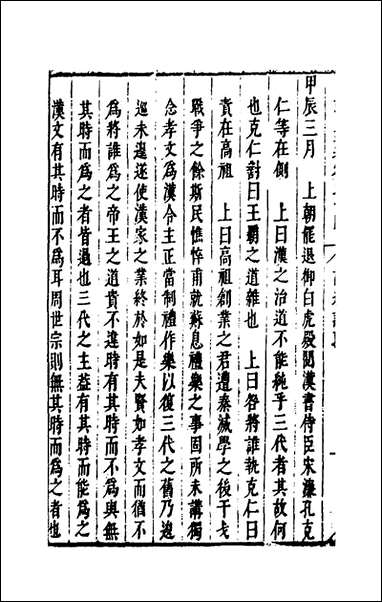 甲辰三月　上朝罷退御白虎殿閱漢書侍臣宋濂孔克
仁等在側　上曰漢之治道不能純乎三代者其故何
也克仁對曰王霸之道雜也　上曰咎將誰執克仁曰
責在高祖　上曰高祖創業之君遭秦滅學之後干戈
戰爭之餘斯民憔悴甫就蘇息禮樂之事固所未講獨
念孝文為漢令主正當制禮作樂以復三代之舊乃逡
巡未遑遂使漢家之業終於如是夫賢如孝文而猶不
為將誰為之帝王之道貴不違時有其時而不為與無
其時而為之者皆過也三代之主葢有其時而能為之
漢文有其時而不為耳周世宗則無其時而為之者也